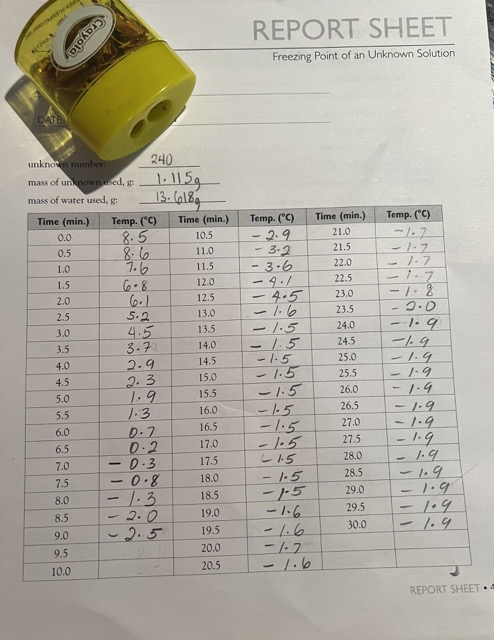 REPORT SHEET
Freezing Point of an Unknown Solution
Crayola
DATE
unknown number: 240
mass of unknown used, g: 1.115g
mass of water used, g: 13.618g
Time (min.) Temp. (°C) Time (min.) Temp. (°C) Time (min.) Temp. (°C)
0.0 8.5 10.5 -2.9 21.0 -1.7
0.5 8.6 11.0 -3.2 21.5 -1.7
1.0 7.6 11.5 -3.6 22.0 -1.7
1.5 6.8 12.0 -4.1 22.5 -1.7
2.0 6.1 12.5 -4.5 23.0 -1.8
2.5 5.2 13.0 -1.6 23.5 -2.0
3.0 4.5 13.5 -1.5 24.0 -1.9
3.5 3.7 14.0 -1.5 24.5 -1.9
4.0 2.9 14.5 -1.5 25.0 -1.9
4.5 2.3 15.0 -1.5 25.5 -1.9
5.0 1.9 15.5 -1.5 26.0 -1.9
5.5 1.3 16.0 -1.5 26.5 -1.9
6.0 0.7 16.5 -1.5 27.0 -1.9
6.5 0.2 17.0 -1.5 27.5 -1.9
7.0 -0.3 17.5 -1.5 28.0 -1.9
7.5 -0.8 18.0 -1.5 28.5 -1.9
8.0 -1.3 18.5 -1.5 29.0 -1.9
8.5 -2.0 19.0 -1.6 29.5 -1.9
9.0 -2.5 19.5 -1.6 30.0 -1.9
9.5 20.0 -1.7
10.0 20.5 -1.6
REPORT SHEET •